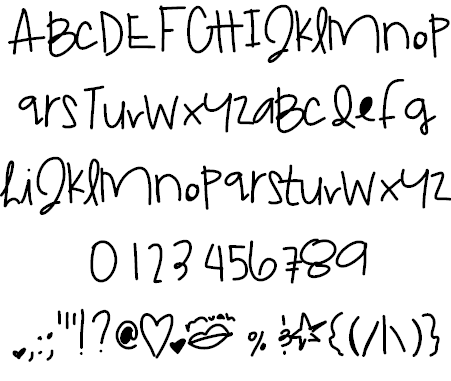 ABCDEFGHIJKLMNOP
QRSTUVWXYZABCDEFG
HIJKLMNOPQRSTUVWXYZ
0123456789
,.:;"'!?@ muah % & {(/|\)}